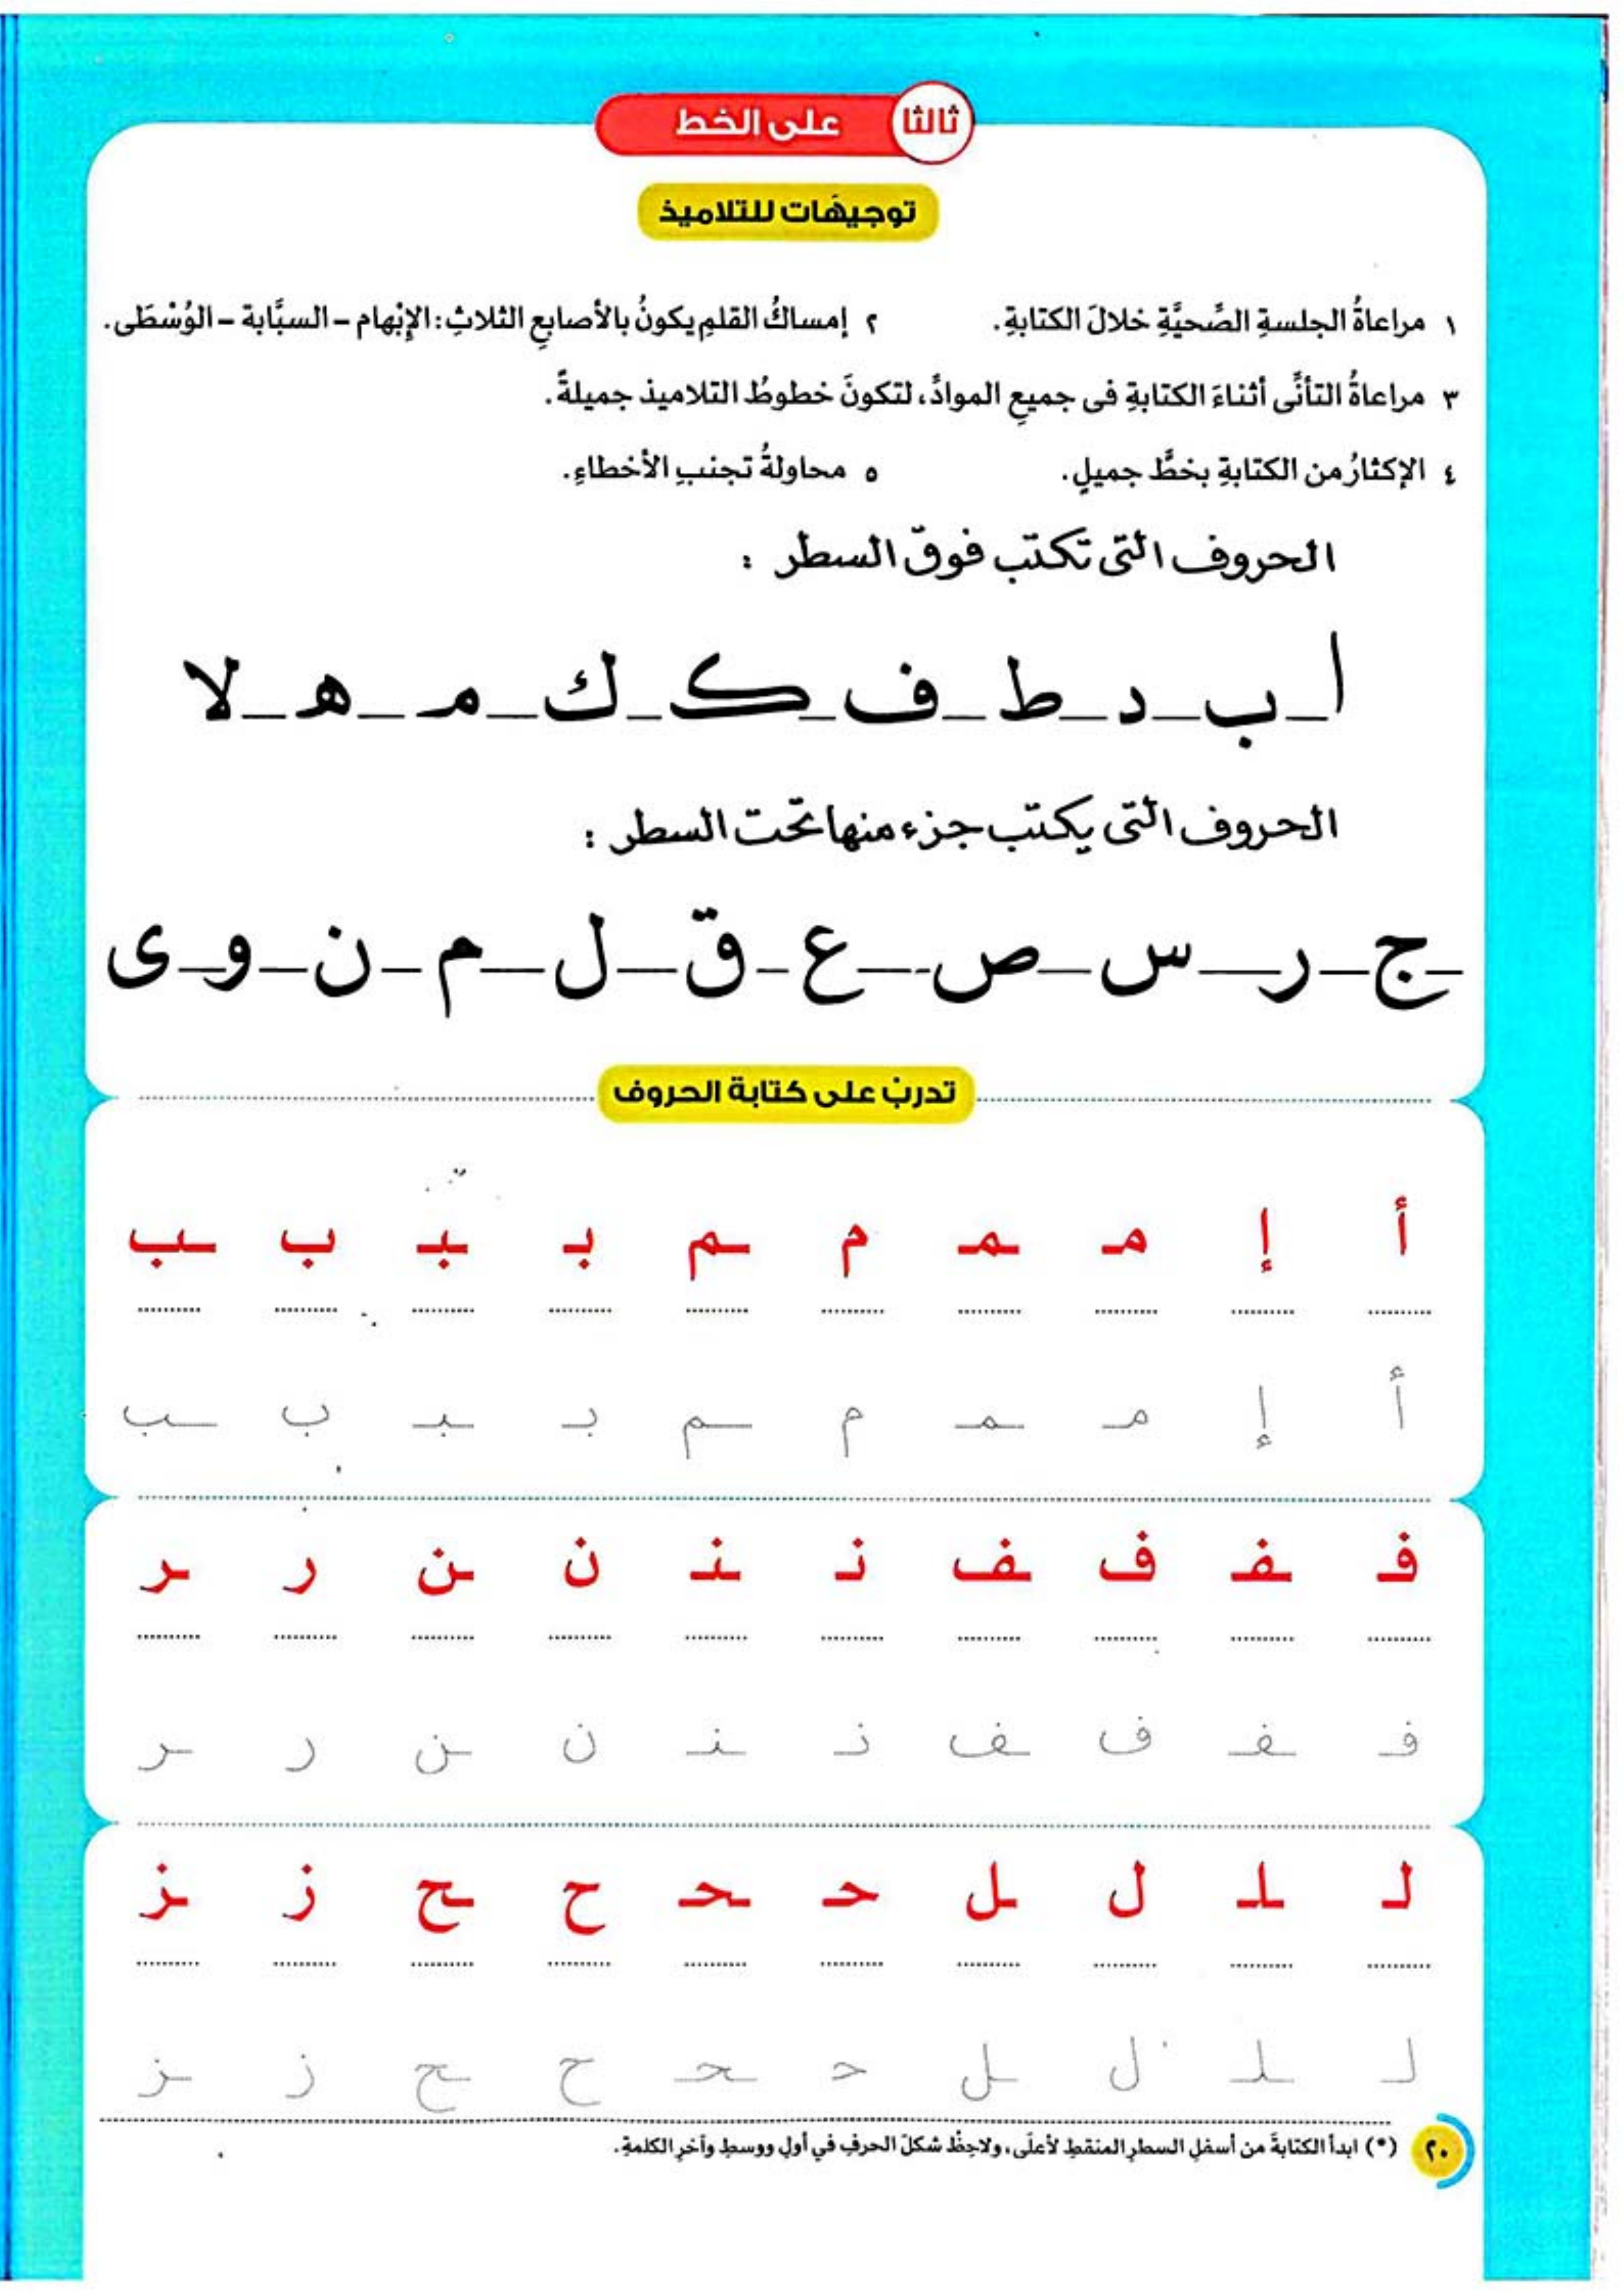 ثالثا على الخط
توجيهَات للتلاميذ
١ مراعاةُ الجلسةِ الصِّحيَّةِ خلالَ الكتابةِ. ٢ إمساكُ القلمِ يكونُ بالأصابعِ الثلاثِ: الإبْهام - السبَّابة - الوُسْطَى.
٣ مراعاةُ التأنِّى أثناءَ الكتابةِ فى جميعِ الموادِّ، لتكونَ خطوطُ التلاميذ جميلةً.
٤ الإكثارُ من الكتابةِ بخطٍّ جميلٍ. ٥ محاولةُ تجنبِ الأخطاءِ.
الحروف التى تكتب فوق السطر :
ا_ب_د_ط_ف_ك_ك_مـ_هـ_لا
الحروف التى يكتب جزء منها تحت السطر :
ج_ر_س_ص_ع_ق_ل_م_ن_و_ى
تدربْ على كتابة الحروف
أ إ مـ ـمـ م ـم بـ ـبـ ب ـب
أ إ مـ ـمـ م ـم بـ ـبـ ب ـب
فـ ـفـ ف ـف نـ ـنـ ن ـن ر ـر
فـ ـفـ ف ـف نـ ـنـ ن ـن ر ـر
لـ ـلـ ل ـل حـ ـحـ ح ـح ز ـز
لـ ـلـ ل ـل حـ ـحـ ح ـح ز ـز
(*) ابدأ الكتابةَ من أسفلِ السطرِ المنقطِ لأعلَى، ولاحِظْ شكلَ الحرفِ في أولِ ووسطِ وآخرِ الكلمةِ.
٢٠